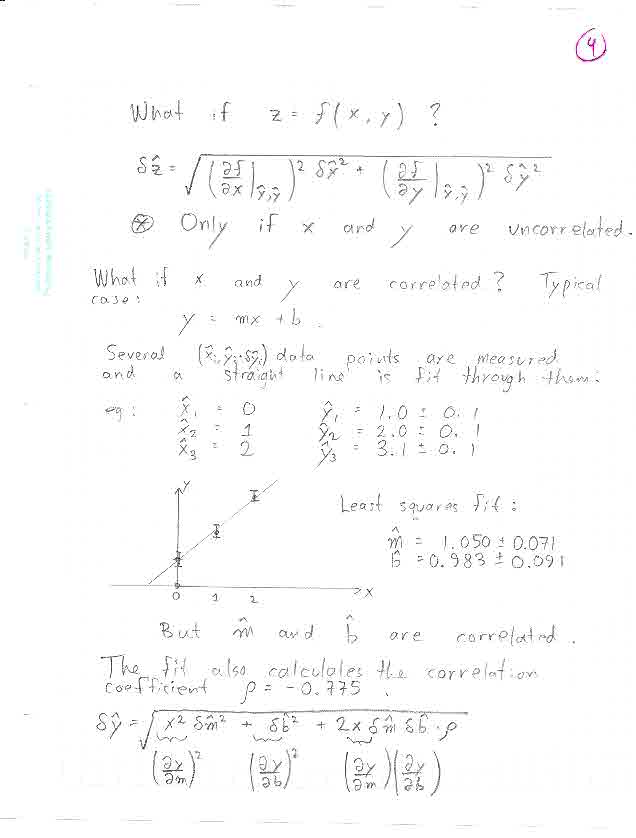 4
What if z = f(x, y) ?
δẑ = √( (∂f/∂x |x̂,ŷ)² δx̂² + (∂f/∂y |x̂,ŷ)² δŷ² )
⊛ Only if x and y are uncorrelated.
What if x and y are correlated? Typical
case:
y = mx + b .
Several (x̂ᵢ, ŷᵢ, δŷᵢ) data points are measured
and a straight line is fit through them:
eg: x̂₁ = 0 ŷ₁ = 1.0 ± 0.1
x̂₂ = 1 ŷ₂ = 2.0 ± 0.1
x̂₃ = 2 ŷ₃ = 3.1 ± 0.1
y
Least squares fit:
m̂ = 1.050 ± 0.071
b̂ = 0.983 ± 0.091
x
0 1 2
But m̂ and b̂ are correlated.
The fit also calculates the correlation
coefficient ρ = -0.775 .
δŷ = √( x² δm̂² + δb̂² + 2x δm̂ δb̂ · ρ )
(∂y/∂m)² (∂y/∂b)² (∂y/∂m)(∂y/∂b)